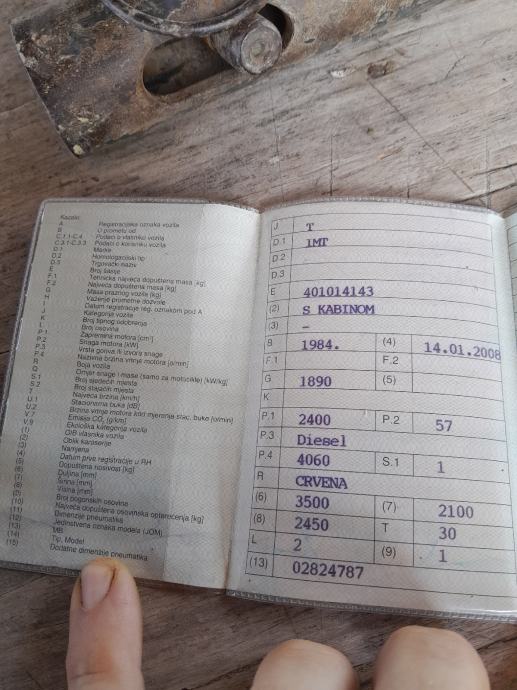 Kazalo:
A Registracijska oznaka vozila
B U prometu od
C.1.1-C.4 Podaci o vlasniku vozila
C.3.1-C.3.3 Podaci o korisniku vozila
D.1 Marka
D.2 Homologacijski tip
D.3 Trgovački naziv
E Broj šasije
F.1 Tehnička najveća dopuštena masa [kg]
F.2 Najveća dopuštena masa [kg]
G Masa praznog vozila [kg]
H Važenje prometne dozvole
I Datum registracije reg. oznakom pod A
J Kategorija vozila
K Broj tipnog odobrenja
L Broj osovina
P.1 Zapremina motora [cm³]
P.2 Snaga motora [kW]
P.3 Vrsta goriva ili izvora snage
P.4 Nazivna brzina vrtnje motora [o/min]
R Boja vozila
Q Omjer snage i mase (samo za motocikle) [kW/kg]
S.1 Broj sjedećih mjesta
S.2 Broj stajaćih mjesta
T Najveća brzina [km/h]
U.1 Stacionarna buka [dB]
U.2 Brzina vrtnje motora kod mjerenja stac. buke [o/min]
V.7 Emisija CO₂ [g/km]
V.9 Ekološka kategorija vozila
(1) OIB vlasnika vozila
(2) Oblik karoserije
(3) Namjena
(4) Datum prve registracije u RH
(5) Dopuštena nosivost [kg]
(6) Duljina [mm]
(7) Širina [mm]
(8) Visina [mm]
(9) Broj pogonskih osovina
(10) Najveća dopuštena osovinska opterećenja [kg]
(11) Dimenzije pneumatika
(12) Jedinstvena oznaka modela (JOM)
(13) MB
(14) Tip, Model
(15) Dodatne dimenzije pneumatika
J T
D.1 IMT
D.2
D.3
E 401014143
(2) S KABINOM
(3) –
B 1984. (4) 14.01.2008
F.1 F.2
G 1890 (5)
K
P.1 2400 P.2 57
P.3 Diesel
P.4 4060 S.1 1
R CRVENA
(6) 3500 (7) 2100
(8) 2450 T 30
L 2 (9) 1
(13) 02824787